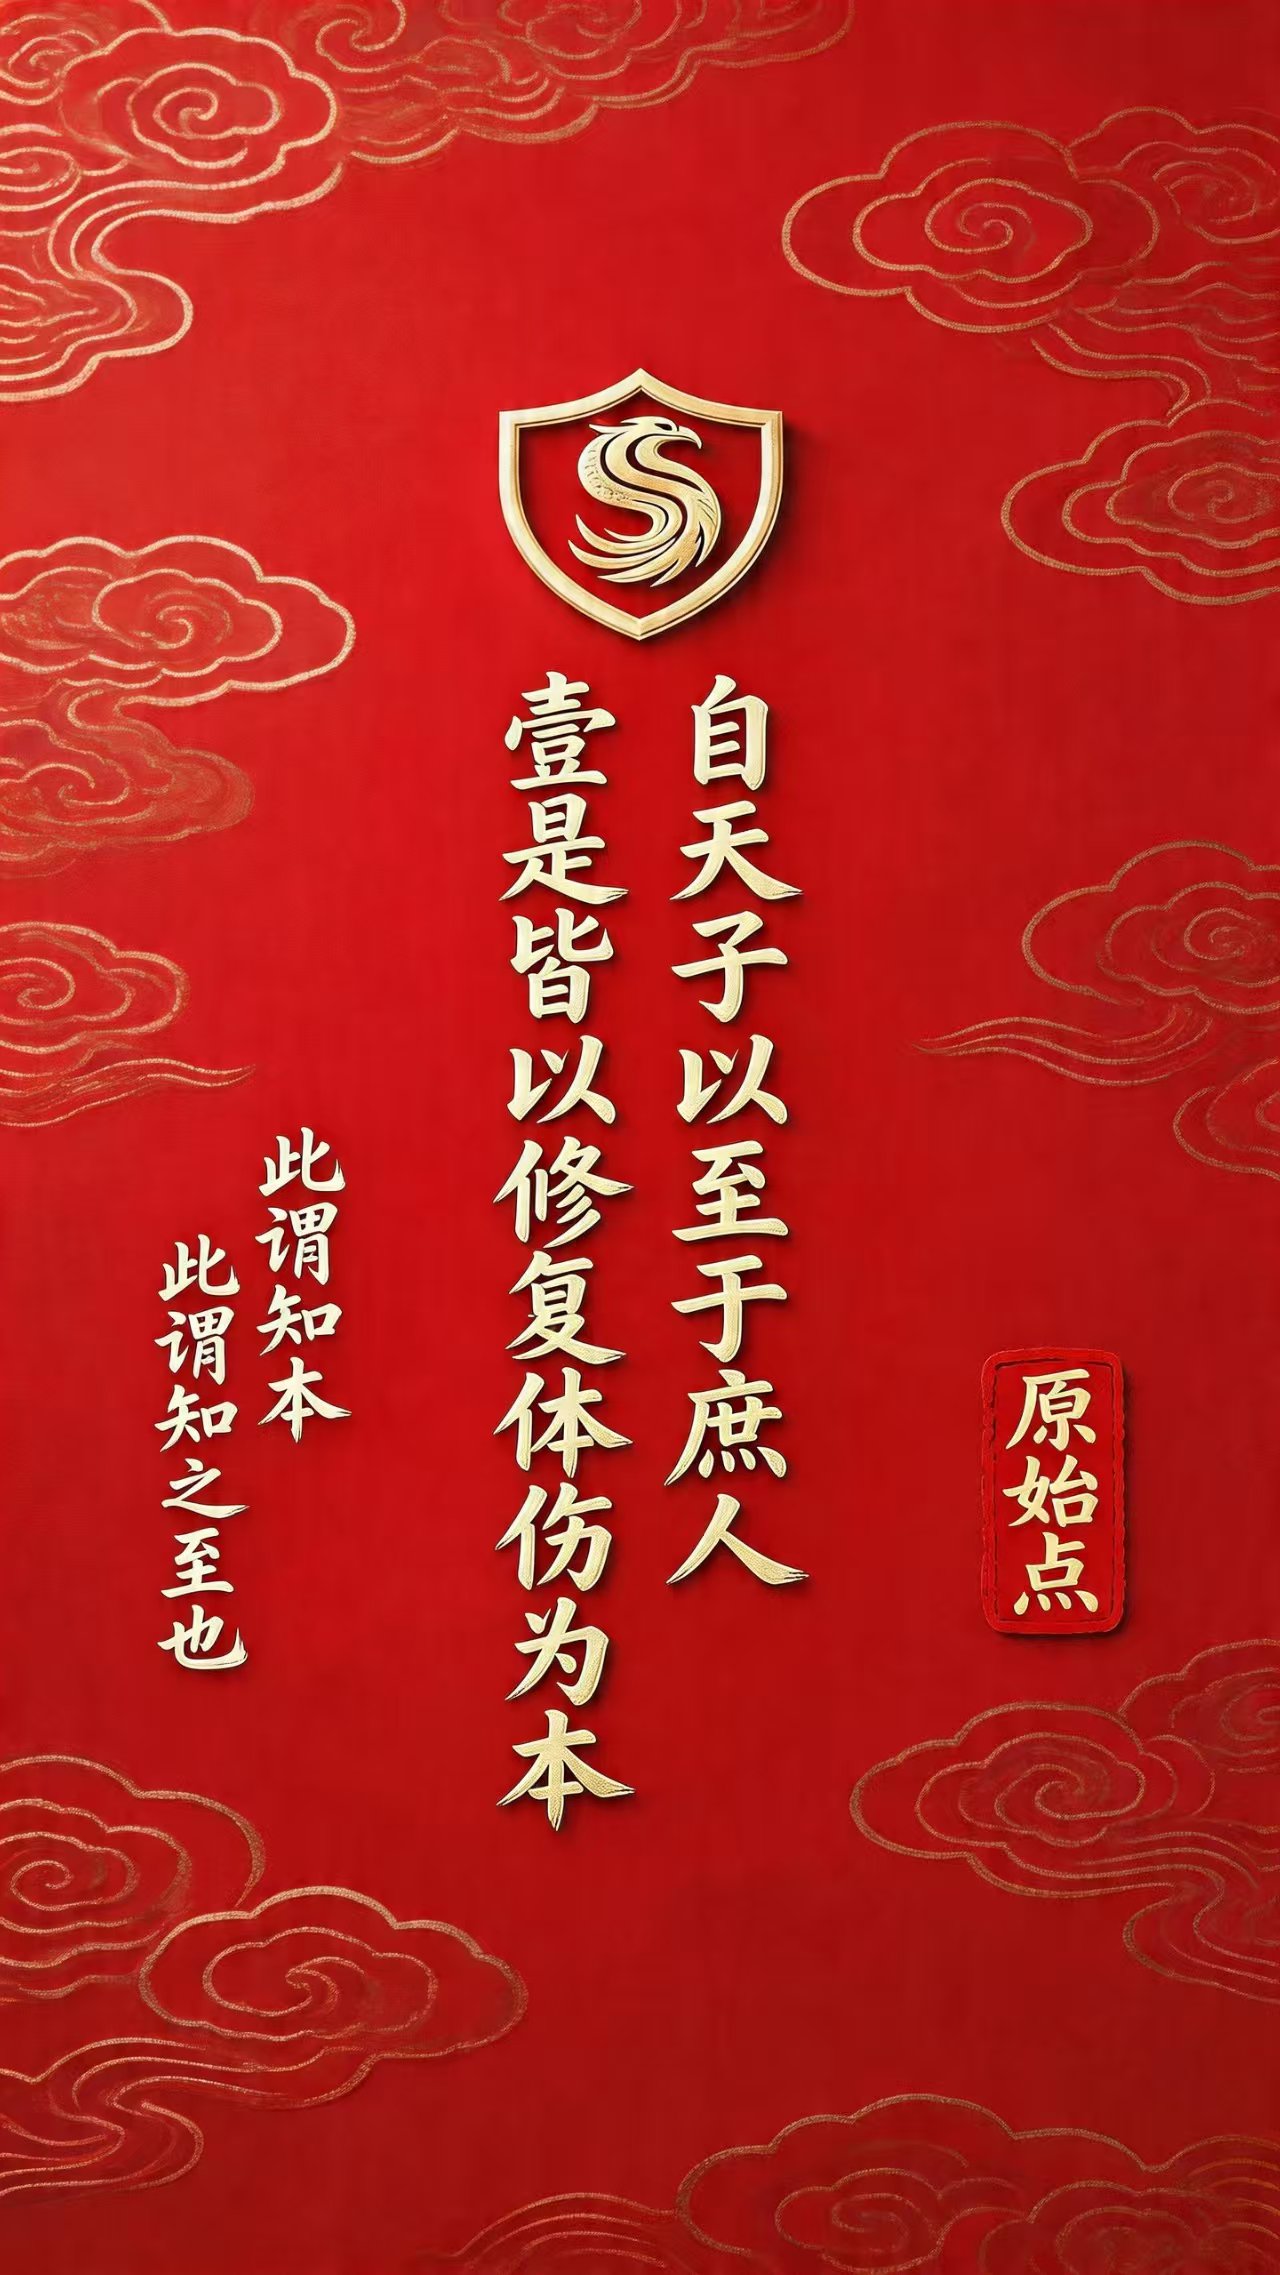 自天子以至于庶人
壹是皆以修复体伤为本
此谓知本
此谓知之至也
原始点